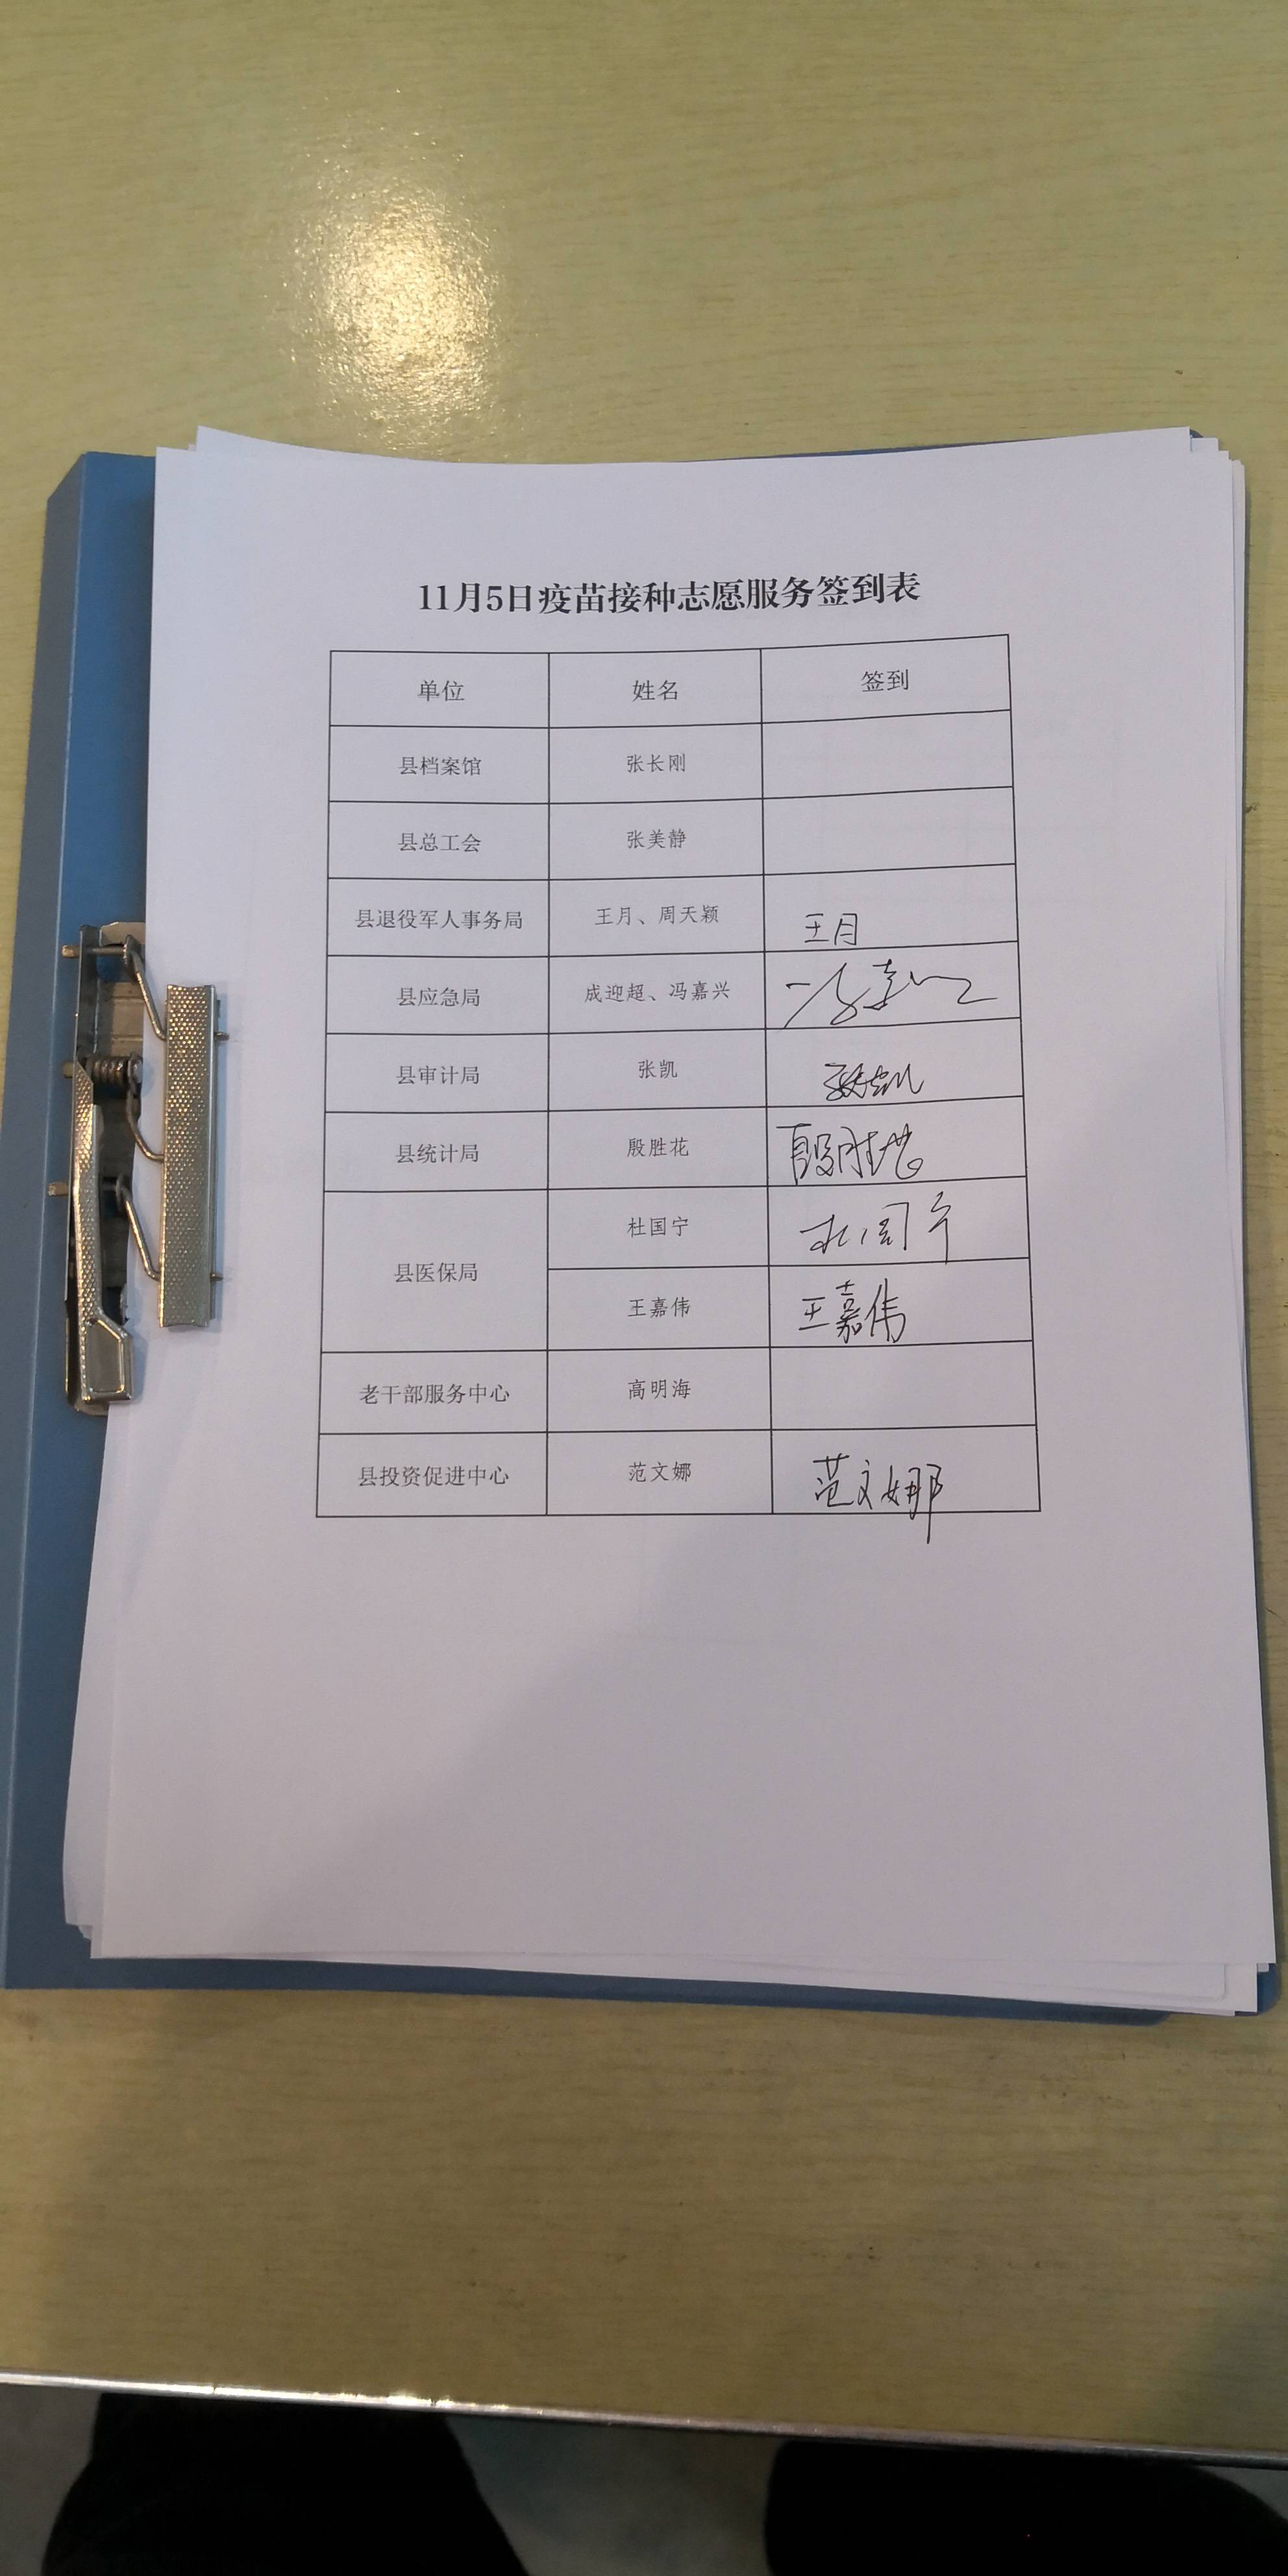 11月5日疫苗接种志愿服务签到表
单位 姓名 签到
县档案馆 张长刚
县总工会 张美静
县退役军人事务局 王月、周天颖 王月
县应急局 成迎超、冯嘉兴 冯嘉兴
县审计局 张凯 张凯
县统计局 殷胜花 殷胜花
县医保局 杜国宁 杜国宁
王嘉伟 王嘉伟
老干部服务中心 高明海
县投资促进中心 范文娜 范文娜